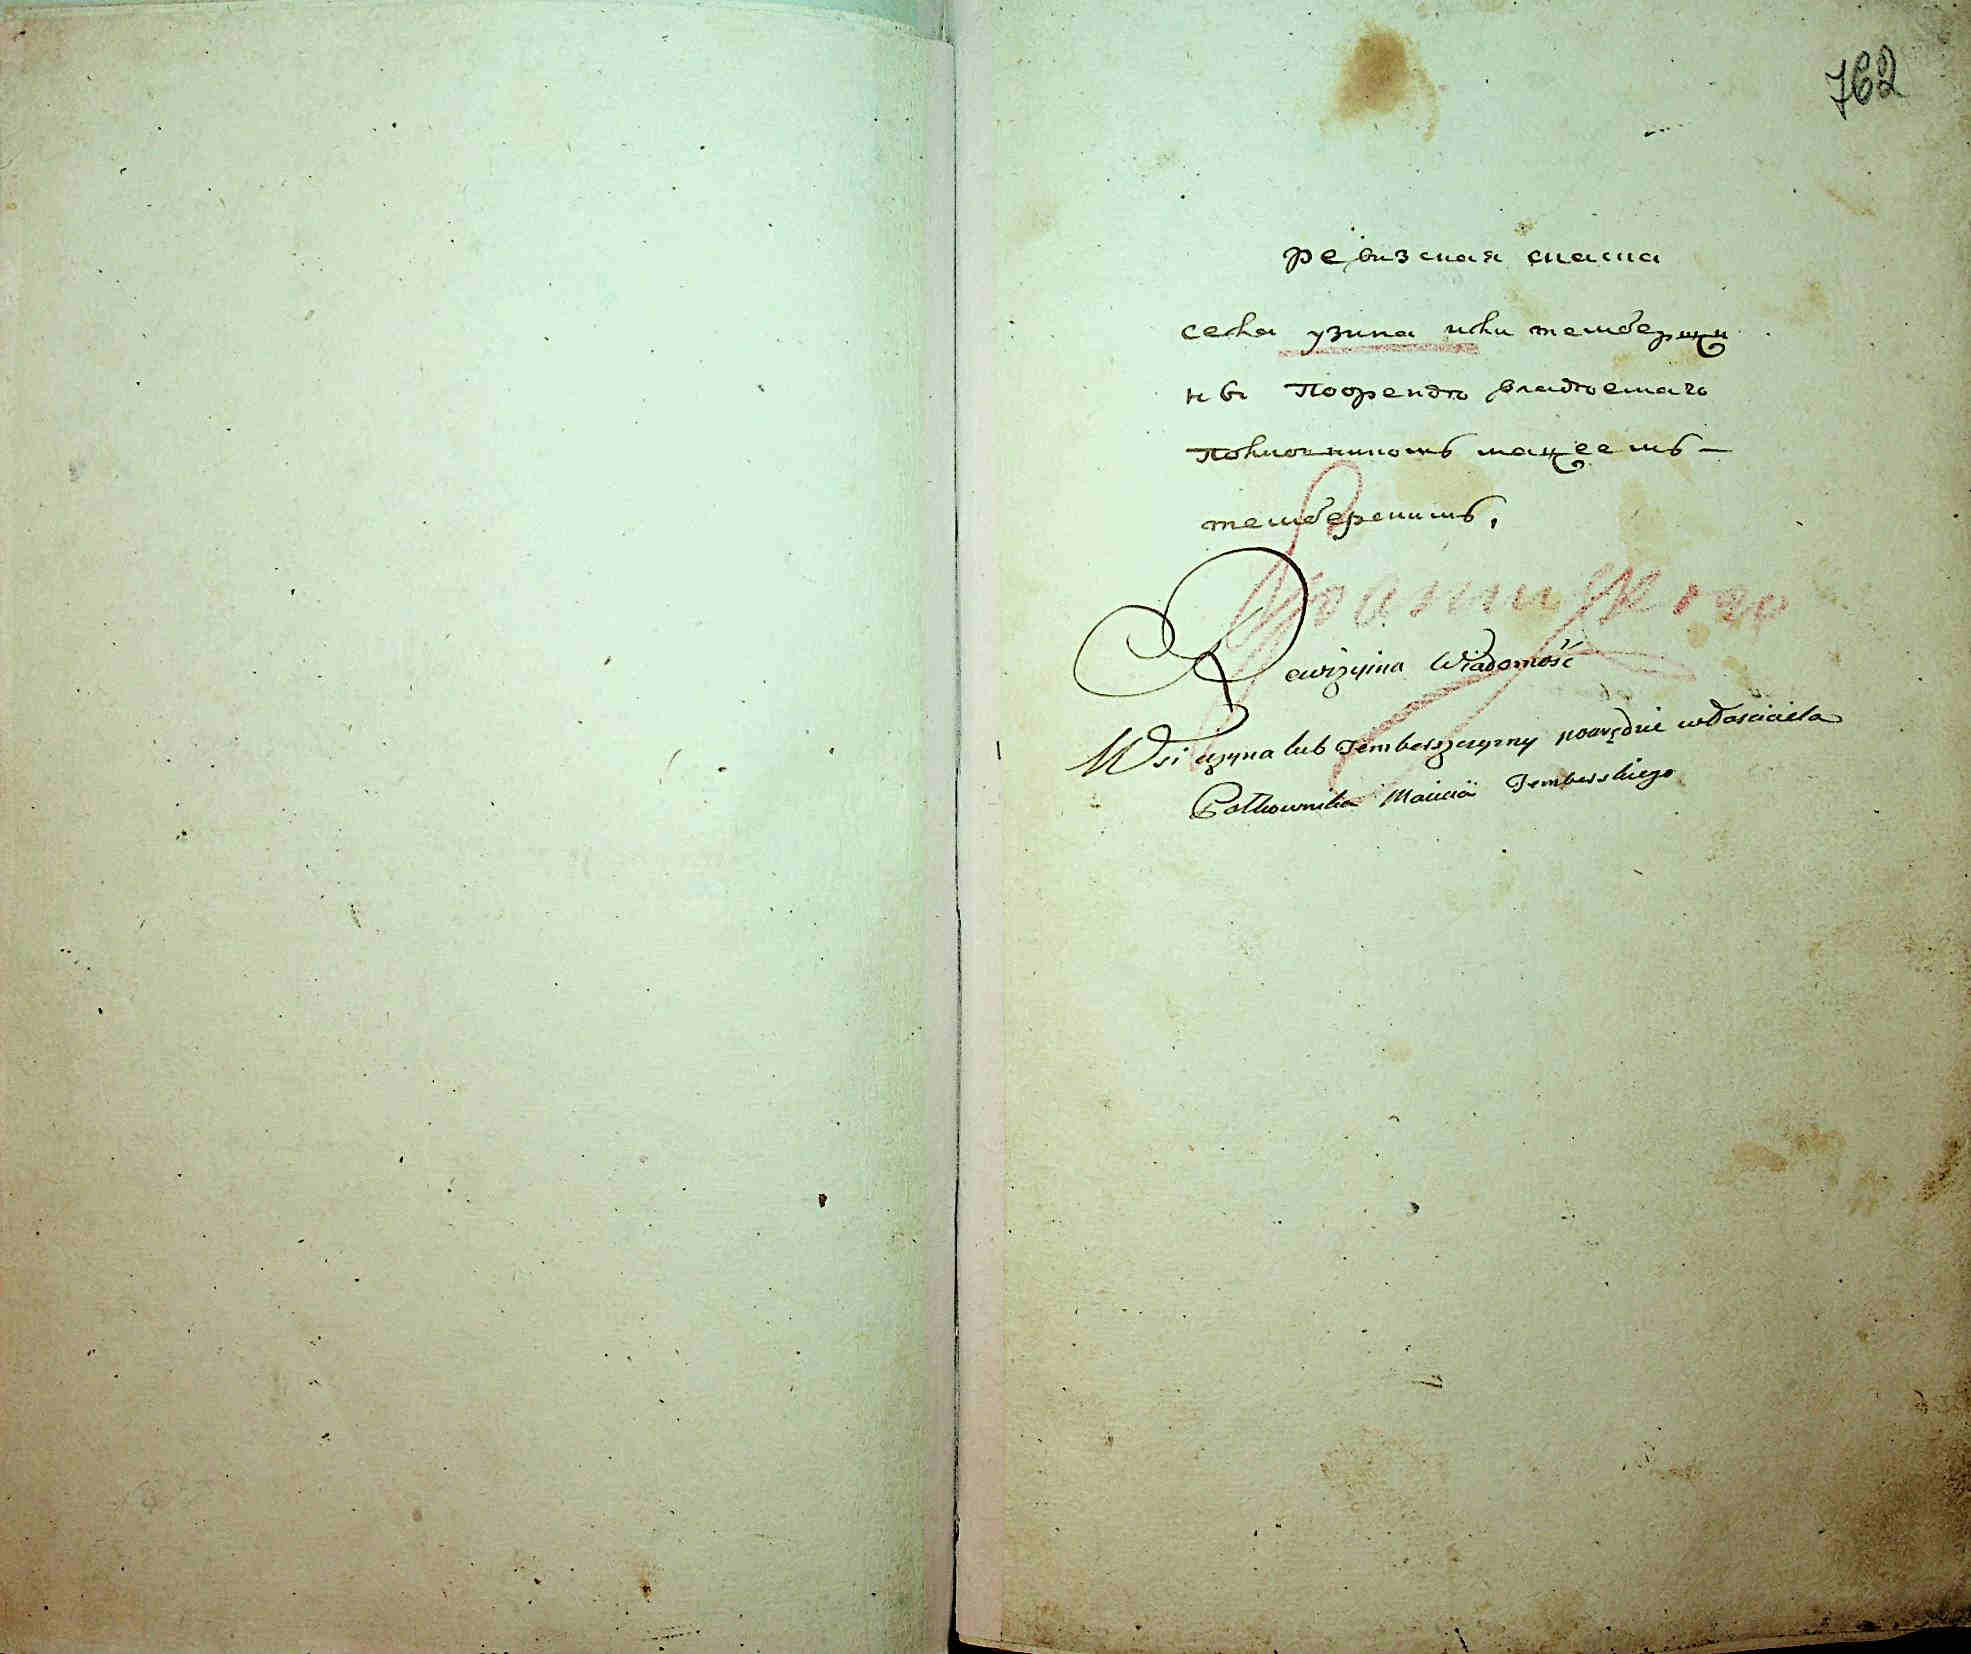 762
ревизская скаска
села узина или тембершчи
нъ поорендѣ владѣемаго
полковникомъ мацеемъ –
темберскимъ,
Rewizyina Wiadomość
Wsi uzyna lub Temberszczyzny poarędzie własciciela
Połkownika Macieia Temberskiego